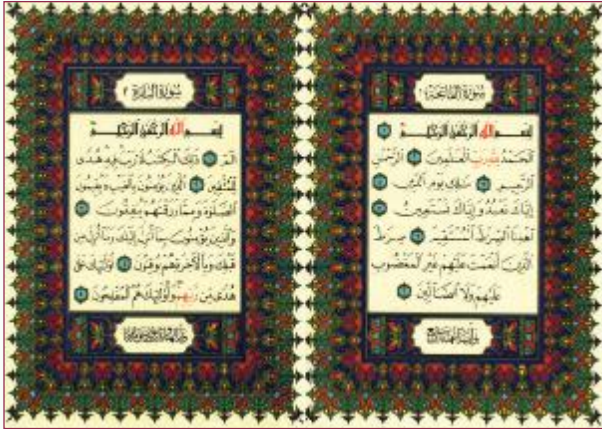 سورة الفاتحة
بسم الله الرحمن الرحيم
الحمد لله رب العلمين الرحمن
الرحيم ملك يوم الدين
إياك نعبد وإياك نستعين
اهدنا الصرط المستقيم صرط
الذين أنعمت عليهم غير المغضوب
عليهم ولا الضالين
سورة البقرة ٢
بسم الله الرحمن الرحيم
الم ذلك الكتب لا ريب فيه هدى
للمتقين الذين يؤمنون بالغيب ويقيمون
الصلوة ومما رزقنهم ينفقون
والذين يؤمنون بما أنزل إليك وما أنزل من
قبلك وبالآخرة هم يوقنون أولئك على
هدى من ربهم وأولئك هم المفلحون